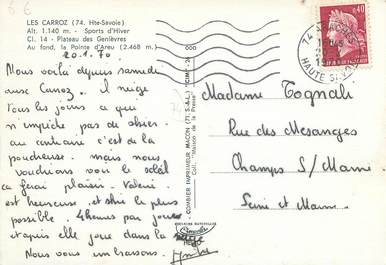 LES CARROZ (74. Hte-Savoie)
Alt. 1.140 m. - Sports d'Hiver
Cl. 14 - Plateau des Genièvres
Au fond, la Pointe d'Areu (2.468 m.)
20.1.70
Nous voilà depuis samedi
aux Carroz. Il neige
tous les jours ce qui
n'empêche pas de skier
au contraire c'est de la
poudreuse. mais nous
voudrions voir le soleil
ça ferai plaisir. Valérie
est heureuse, et skie le plus
possible. 4 heures par jour
et après elle joue dans la neige
Nous vous embrassons.
COMBIER IMPRIMEUR MACON (71. S.&L.) "CIM"
Coll. "Maison de la Presse"
0,40
74
HAUTE SAVOIE
Madame Tognali
Rue des Mesanges
Champs S/ Marne
Seine et Marne